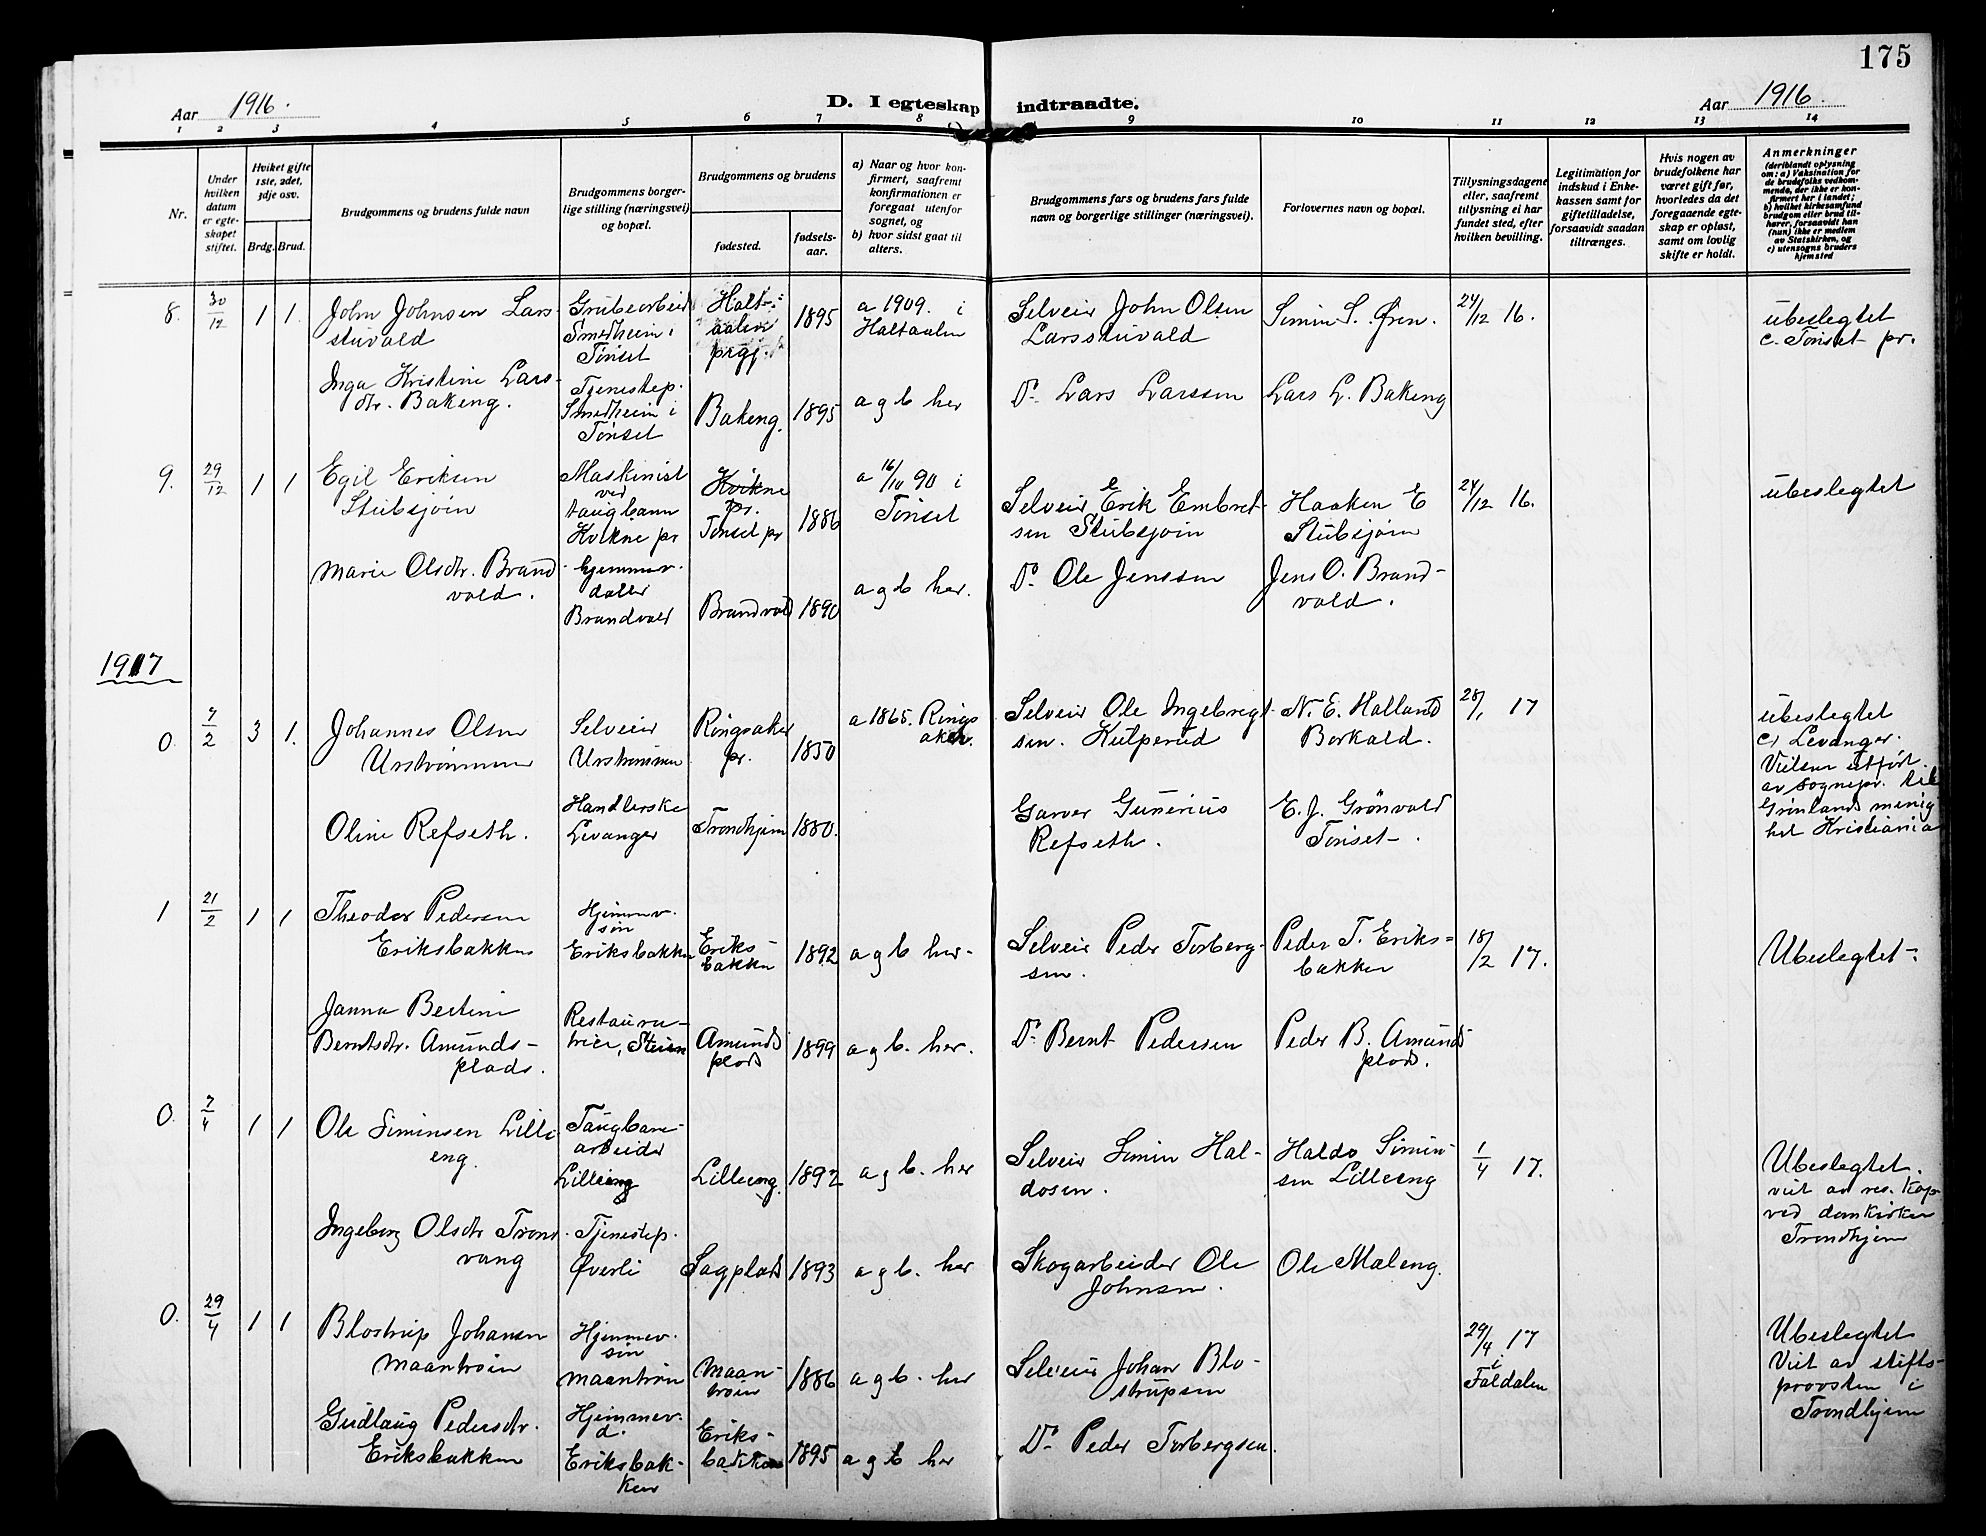 175
Aar 1916.
D. I egteskap indtraadte.
Aar 1916.
1 2 3 4 5 6 7 8 9 10 11 12 13 14
Nr.
Under hvilken datum er egteskapet stiftet.
Hvilket gifte 1ste, 2det, 3dje osv.
Brdg. Brud.
Brudgommens og brudens fulde navn
Brudgommens borgerlige stilling (næringsvei) og bopæl.
Brudgommens og brudens
fødested.
fødselsaar.
a) Naar og hvor konfirmert, saafremt konfirmationen er foregaat utenfor sognet, og
b) hvor sidst gaat til alters.
Brudgommens fars og brudens fars fulde navn og borgerlige stillinger (næringsvei).
Forlovernes navn og bopæl.
Tillysningsdagene eller, saafremt tillysning ei har fundet sted, efter hvilken bevilling.
Legitimation for indskud i Enkekassen samt for giftetilladelse, forsaavidt saadan tiltrænges.
Hvis nogen av brudefolkene har været gift før, hvorledes da det foregaaende egteskap er opløst, samt om lovlig skifte er holdt.
Anmerkninger
(deriblandt oplysning om: a) Vaksination for de brudefolks vedkommende, der ikke er konfirmert her i landet; b) hvilket kirkesamfund brudgom eller brud tilhører, forsaavidt han (hun) ikke er medlem av Statskirken, og c) utensogns bruders hjemsted
8. 30/12 1 1. John Johnsen Larsstuvold
Grubearbeid Smedheim i Tønset
Haltaalen prgj.
1895
a 1909. i Haltaalen
Selveier John Olsen Larsstuvold
Simin S. Øren.
24/12 16.
ubeslegtet
c. Tønset pr.
Inga Kristine Larsdtr. Bakeng.
Tjenestep. Smedheim i Tønset
Bakeng.
1895
a g b her
Do Lars Larssen
Lars L. Bakeng
9. 29/12 1 1 Egil Eriksen Stubsjøin
Maskinist ved taugbanen Kvikne pr
Kvikne pr. Tønset pr
1886
a 16/10 90 i Tønset
Selveier Erik E Embretsen Stubsjøin
Haaken E Stubsjøin
24/12 16.
ubeslegtet
Marie Olsdtr. Brandvold.
hjemmev. datter Brandvold
Brandvold
1890
a g b her.
Do Ole Jenssen
Jens O. Brandvold.
1917
0. 7/2 3 1. Johannes Olsen Urstrømmen
Selveier Urstrømmen
Ringsaker pr.
1850
a 1865. Ringsaker.
Selveier Ole Ingebregtsen. Kulperud
N. E. Halland Borkald.
28/1 17
ubeslegtet
c) Levanger.
Vielsen utført
av sognepr. til
Grønlands menig
het Kristiania
Oline Refseth.
Handlerske Levanger
Trondhjem
1880.
Garver Gunerius Refseth.
E. J. Grønvold Tønset.
1 21/2 1 1 Theodor Pedersen Eriksbakken
Hjemmev. søn Eriksbakken
Eriksbakken
1892
a g b her-
Selveier Peder Torbergsen.
Peder T. Eriksbakken
18/2 17.
Ubeslegtet
Janna Bertine Berntsdtr. Amundsplads.
Restauratrice, Steien
Amundsplads
1899
a g b. her.
Do Bernt Pedersen
Peder B. Amundsplads.
0. 7/4 1 1 Ole Siminsen Lilleeng.
Taugbanearbeider Lilleeng
Lilleeng.
1892
a g b. her
Selveier Simin Haldosen.
Haldo Siminsen Lilleeng
1/4 17.
Ubeslegtet.
viet av res. kap
ved domkirken
Trondhjem
Ingeborg Olsdtr Tronsvang
Tjenestep. Øverli
Sagplads
1893
a g b. her
Skogarbeider Ole Johnsen.
Ole Maleng.
0. 29/4 1 1 Blostrup Johansen Maantrøin
Hjemmev. søn Maantrøin
Maantrøin
1886
a g b. her
Selveier Johan Blostrupsen
29/4 17
i Faldalen
Ubeslegtet
Viet av stiftsprovsten i
Trondhjem
Gudlaug Pedersdtr. Eriksbakken
Hjemmev. d. Eriksbakken
Eriksbakken
1895
a g b her
Do Peder Torbergsen.